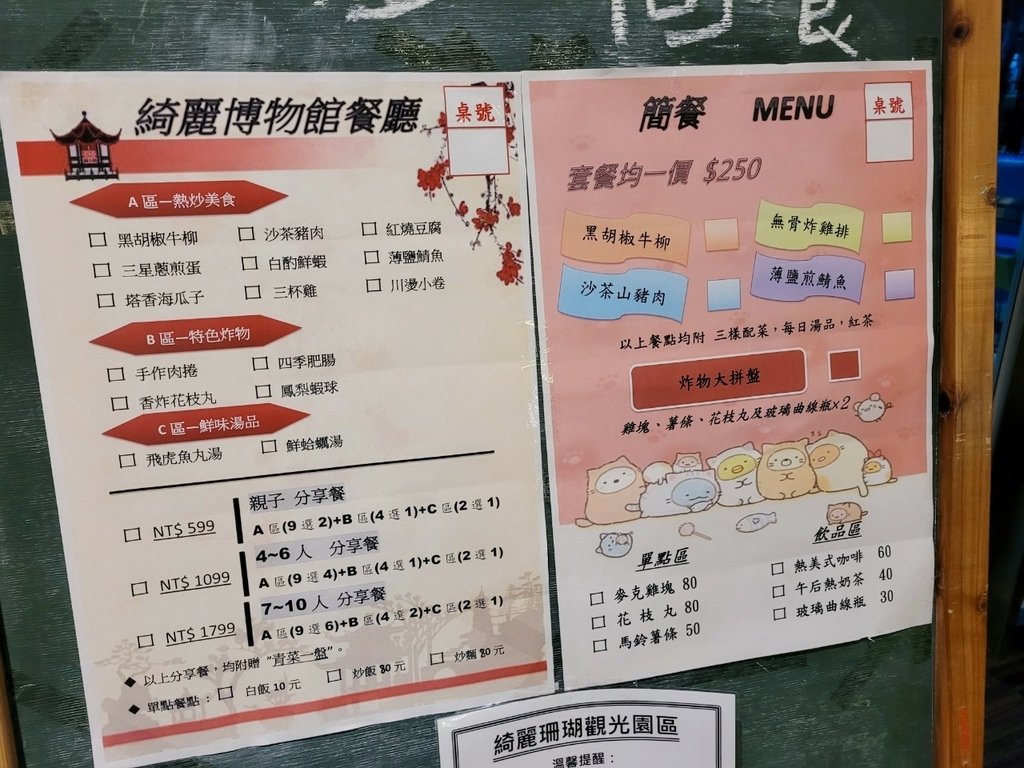 綺麗博物館餐廳
桌號
A 區－熱炒美食
黑胡椒牛柳 沙茶豬肉 紅燒豆腐
三星蔥煎蛋 白酌鮮蝦 薄鹽鯖魚
塔香海瓜子 三杯雞 川燙小卷
B 區－特色炸物
手作肉捲 四季肥腸
香炸花枝丸 鳳梨蝦球
C 區－鮮味湯品
飛虎魚丸湯 鮮蛤蠣湯
親子 分享餐
NT$ 599 A 區(9 選 2)+B 區(4 選 1)+C 區(2 選 1)
4~6 人 分享餐
NT$ 1099 A 區(9 選 4)+B 區(4 選 1)+C 區(2 選 1)
7~10 人 分享餐
NT$ 1799 A 區(9 選 6)+B 區(4 選 2)+C 區(2 選 1)
◆ 以上分享餐，均附贈 "青菜一盤"。
◆ 單點餐點： 白飯 10 元 炒飯 80 元 炒麵 80 元
簡餐 MENU
桌號
套餐均一價 $250
黑胡椒牛柳 無骨炸雞排
沙茶山豬肉 薄鹽煎鯖魚
以上餐點均附 三樣配菜，每日湯品，紅茶
炸物大拼盤
雞塊、薯條、花枝丸及玻璃曲線瓶x2
單點區
麥克雞塊 80
花枝丸 80
馬鈴薯條 50
飲品區
熱美式咖啡 60
午后熱奶茶 40
玻璃曲線瓶 30
綺麗珊瑚觀光園區
溫馨提醒：